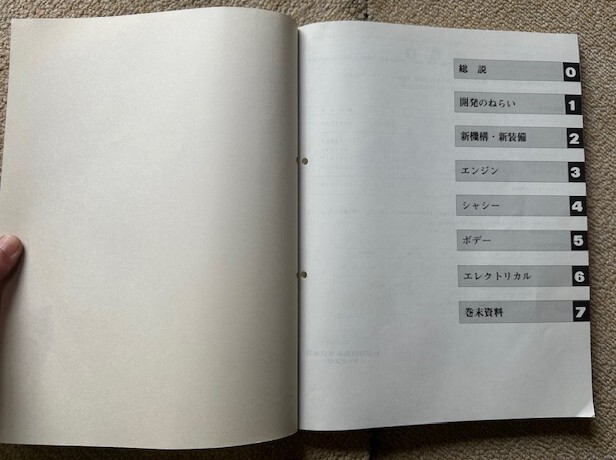 総 説 0
開発のねらい 1
新機構・新装備 2
エンジン 3
シャシー 4
ボデー 5
エレクトリカル 6
巻末資料 7